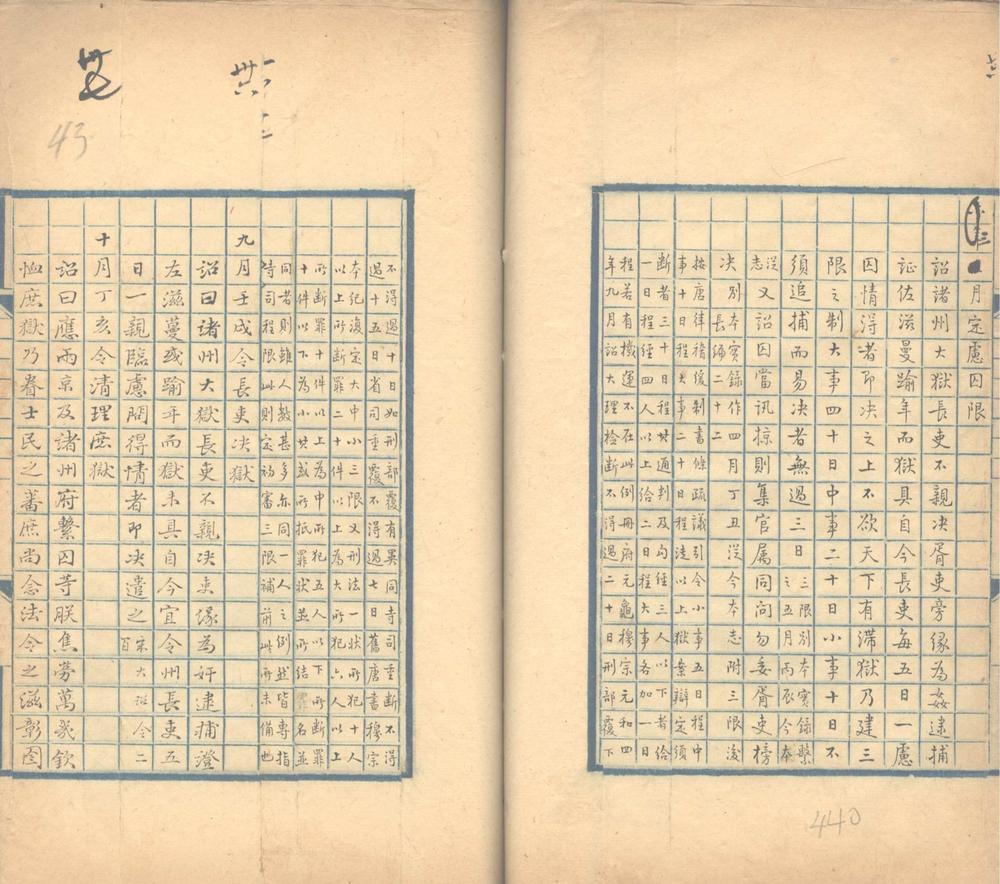 三月定慮囚限
詔諸州大獄長吏不親决胥吏旁緣為姦逮捕
証佐滋曼踰年而獄具自今長吏每五日一慮
囚情得者即决之上不欲天下有滯獄乃建三
限之制大事四十日中事二十日小事十日不
須追捕而易决者無過三日
三限別本實錄繫
之五月丙辰今本
從
志
又詔囚當訊掠則集官属同問勿委胥吏榜
决
別本實錄作四月丁丑從今本志附三限後
長編二十二
按唐律稽緩制書條疏議引令小事五日程中
事十日程大事二十日程徒以上獄案辯定須
斷者三十日程其通判及勾經三人以下者給
一日程經四人以上給二日程大事各加一日
程若有機運不在此例冊府元龜穆宗元和四
年九月詔大理檢斷不得過二十日刑部覆下
440
不得過十日如刑部覆有異同寺司重斷不得
過十五日省司重覆不得過七日舊唐書穆宗
本紀復定大中小三限又刑法一狀所犯十人
以上所斷罪二十件以上為大所犯六人以上
所斷罪十件以上為中所犯五人以下所斷罪
十件以下為小其或所抵罪狀並所結罪名並
同者則雖人數甚多亦同一人之例然皆專指
寺司程限此則定初審三限補前此所未備也
九月壬戌令長吏决獄
詔曰諸州大獄長吏不親决吏緣為奸逮捕證
左滋蔓或踰年而獄未具自今宜令州長吏五
日一親臨慮問得情者即决遣之
宋大詔令二
百
十月丁亥令清理庶獄
詔曰應兩京及諸州府繫囚等朕焦勞萬幾欽
恤庶獄乃眷士民之蕃庶尚念法令之滋彰囹
卅六
43